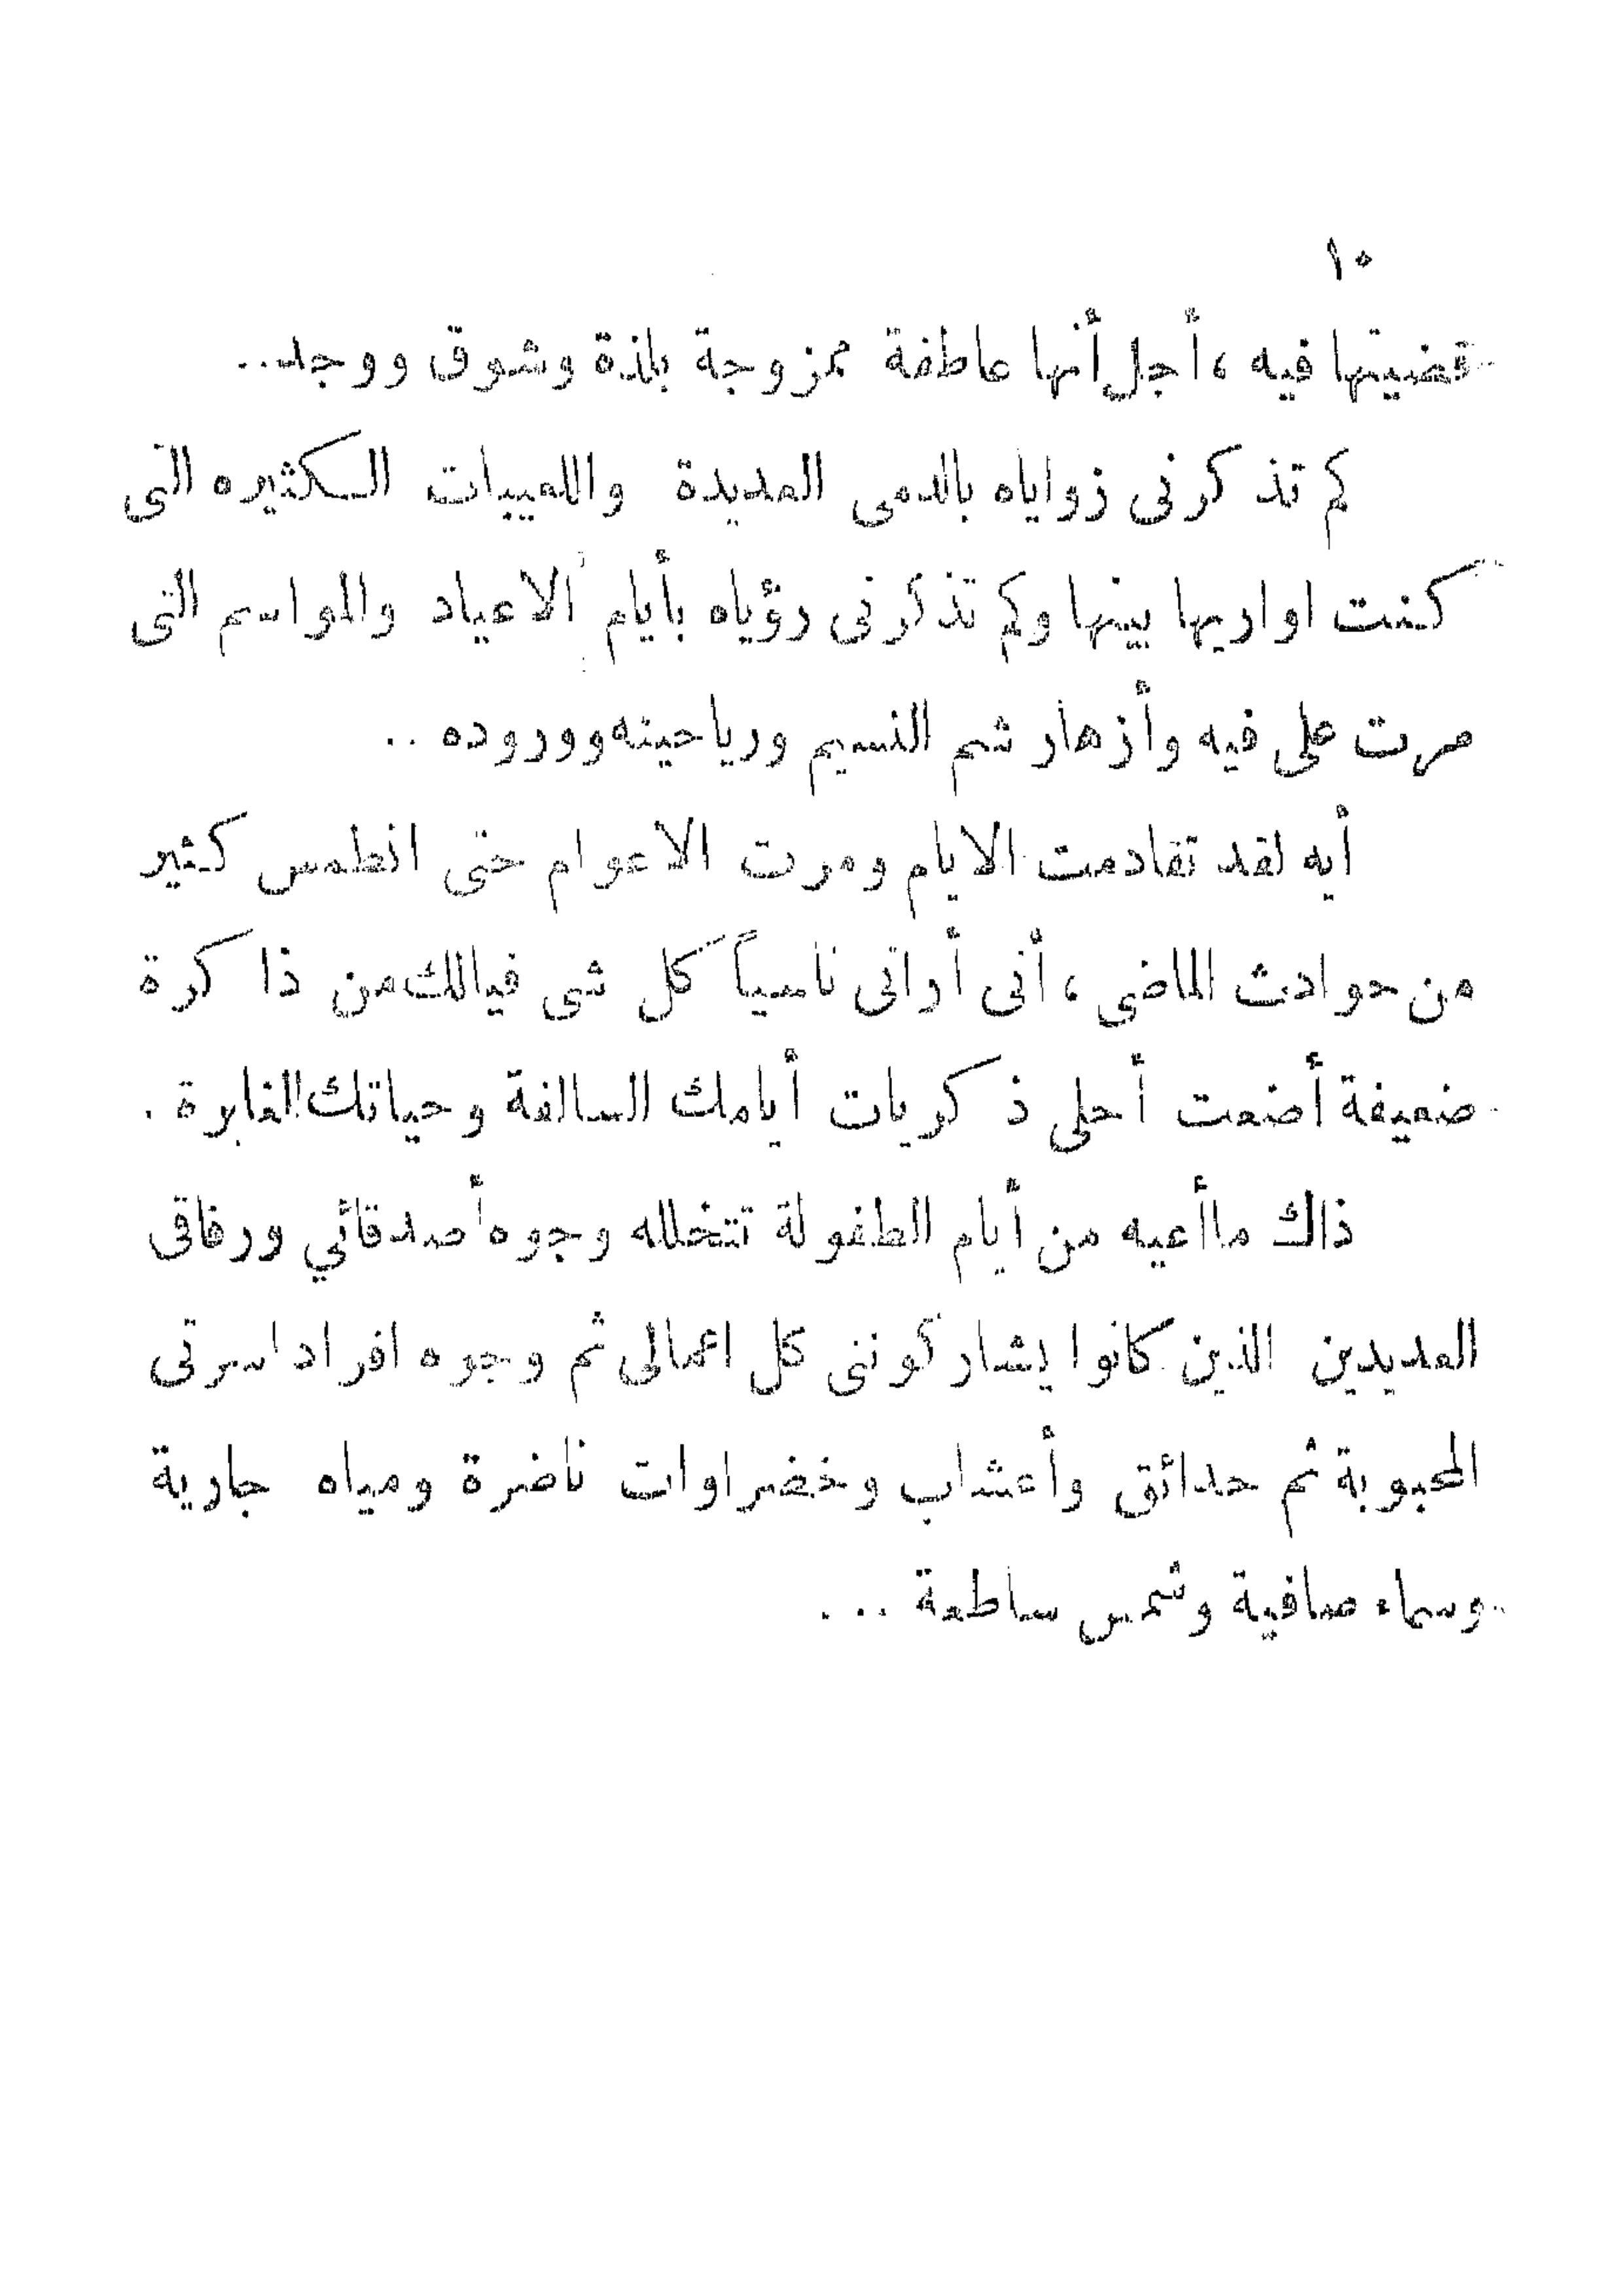 ١٠
قضيتها فيه ، أجل أنها عاطفة ممزوجة بلذة وشوق ووجد..
كم تذكرنى زواياه بالدمى العديدة واللعيبات الكثيره التى
كنت اواريها بينها وكم تذكرنى رؤياه بأيام الاعياد والمواسم التى
مرت على فيه وأزهار شم النسيم ورياحينه ووروده ..
أيه لقد تقادمت الايام ومرت الاعوام حتى انطمس كثير
من حوادث الماضى ، أنى أرانى ناسياً كل شى فيالك من ذاكرة
ضعيفة أضعت أحلى ذكريات أيامك السالفة وحياتك الغابرة .
ذاك ماأعيه من أيام الطفولة تتخلله وجوه أصدقائي ورفاقى
العديدين الذين كانوا يشاركوننى كل اعمالى ثم وجوه افراد اسرتى
المحبوبة ثم حدائق وأعشاب وخضراوات ناضرة ومياه جارية
وسماء صافية وشمس ساطعة ...